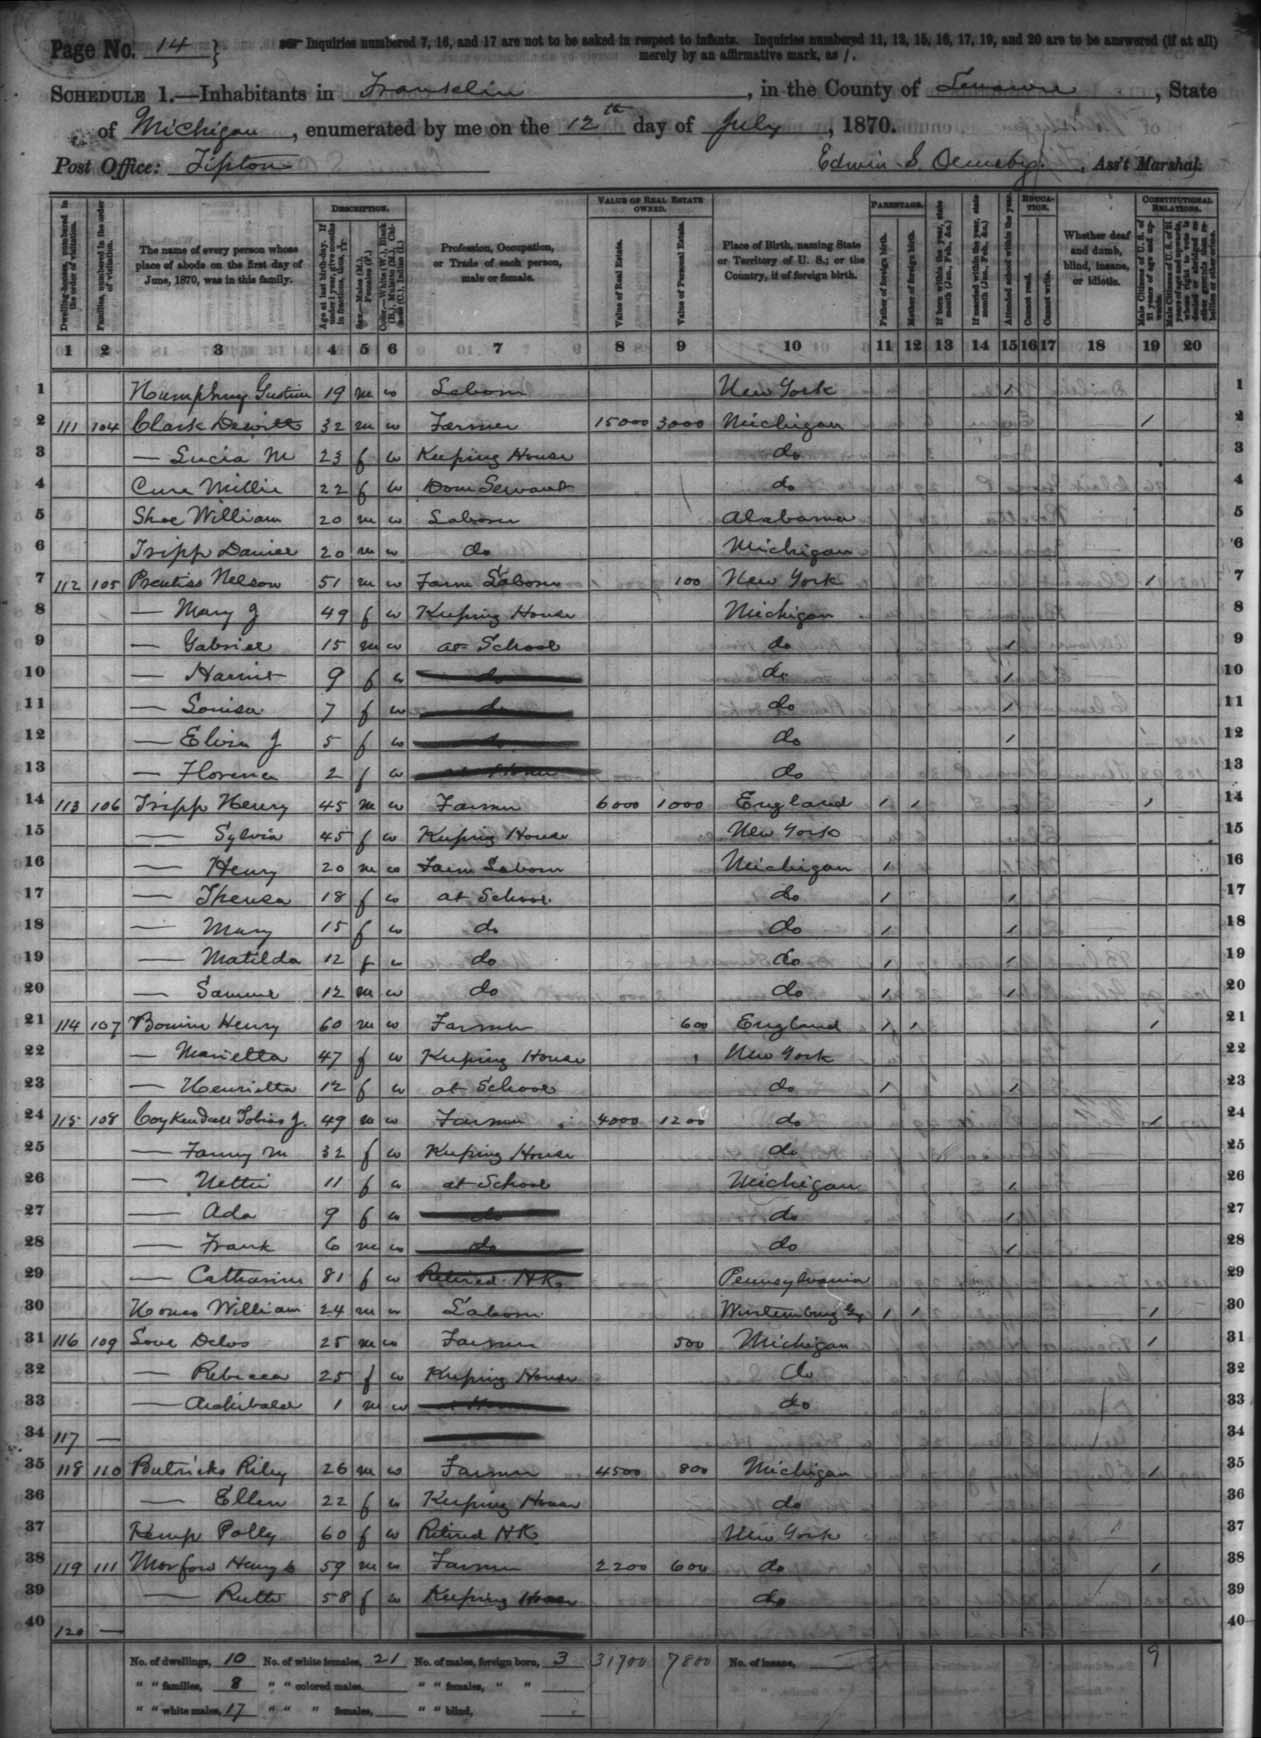 Page No. 14 } Inquiries numbered 7, 16, and 17 are not to be asked in respect to infants. Inquiries numbered 11, 12, 15, 16, 17, 19, and 20 are to be answered (if at all)
merely by an affirmative mark, as /.
SCHEDULE 1.—Inhabitants in Franklin, in the County of Lenawee, State
of Michigan, enumerated by me on the 12th day of July, 1870.
Post Office: Tipton Edwin S. Ormsby, Ass't Marshal.
DESCRIPTION. VALUE OF REAL ESTATE OWNED. PARENTAGE. EDUCATION. CONSTITUTIONAL RELATIONS.
Dwelling-houses, numbered in the order of visitation. Families, numbered in the order of visitation. The name of every person whose place of abode on the first day of June, 1870, was in this family. Profession, Occupation, or Trade of each person, male or female. Value of Real Estate. Value of Personal Estate. Place of Birth, naming State or Territory of U. S.; or the Country, if of foreign birth. Father of foreign birth. Mother of foreign birth. Attended school within the year. Cannot read. Cannot write. Whether deaf and dumb, blind, insane, or idiotic.
1 2 3 4 5 6 7 8 9 10 11 12 13 14 15 16 17 18 19 20
1 Humphrey 19 m w Laborer New York / 1
2 111 104 Clark Dewitt 32 m w Farmer 15000 3000 Michigan / 2
3 — Lucia M 23 f w Keeping House do 3
4 Cure Millie 22 f w Dom Servant do 4
5 Shoe William 20 m w Laborer Alabama 5
6 Tripp Daniel 20 m w do Michigan 6
7 112 105 Prentiss Nelson 51 m w Farm Laborer 100 New York / 7
8 — Mary J 49 f w Keeping House Michigan 8
9 — Gabriel 15 m w at School do / 9
10 — Harriet 9 f w do do / 10
11 — Louisa 7 f w do do / 11
12 — Elvira J 5 f w do do / 12
13 — Florence 2 f w at Home do 13
14 113 106 Tripp Henry 45 m w Farmer 6000 1000 England / / / 14
15 — Sylvia 45 f w Keeping House New York 15
16 — Henry 20 m w Farm Laborer Michigan / 16
17 — Theresa 18 f w at School do / / 17
18 — Mary 15 f w do do / / 18
19 — Matilda 12 f w do do / / 19
20 — 12 m w do do / / 20
21 114 107 Henry 60 m w Farmer 600 England / / / 21
22 — Marietta 47 f w Keeping House New York 22
23 — Henrietta 12 f w at School do / / 23
24 115 108 Coykendall Tobias J. 49 m w Farmer 4000 1200 do / 24
25 — Fanny M 32 f w Keeping House do 25
26 — Nettie 11 f w at School Michigan / 26
27 — Ada 9 f w do do / 27
28 — Frank 6 m w do do / 28
29 — Catharine 81 f w Retired H.K. Pennsylvania 29
30 William 24 m w Laborer / / / 30
31 116 109 Love Delos 25 m w Farmer 500 Michigan / 31
32 — Rebecca 25 f w Keeping House do 32
33 — Archibald 1 m w at Home do 33
34 117 — 34
35 118 110 Butricks Riley 26 m w Farmer 4500 800 Michigan / 35
36 — Ellen 22 f w Keeping House do 36
37 Kemp Polly 60 f w Retired H.K. New York 37
38 119 111 Morford 59 m w Farmer 2200 600 do / 38
39 — Ruth 58 f w Keeping House do 39
40 120 — 40
No. of dwellings, 10 No. of white females, 21 No. of males, foreign born, 3 31700 7800 No. of insane, 9
" " families, 8 " " colored males, " " females, " "
" " white males, 17 " " " females, " " blind,